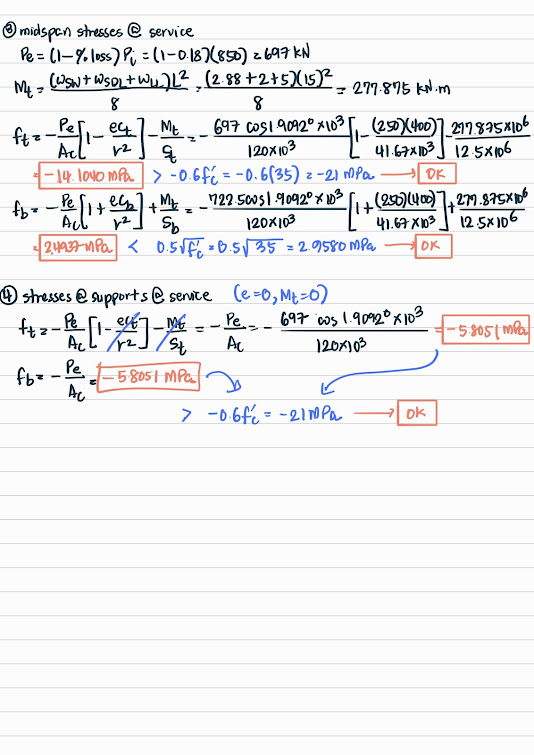 ③ midspan stresses @ service
Pe = (1-% loss) Pi = (1-0.18)(850) = 697 kN
Mt = (ωSW + ωSDL + ωLL)L²/8 = (2.88+2+5)(15)²/8 = 277.875 kN.m
ft = -Pe/Ac [1 - ect/r²] - Mt/St = - 697 cos1.9092° ×10³/120×10³ [1 - (250)(400)/41.67×10³] - 277.875×10⁶/12.5×10⁶
= -14.1040 MPa > -0.6f'c = -0.6(35) = -21 MPa → OK
fb = -Pe/Ac [1 + ecb/r²] + Mt/Sb = - 722.5cos1.9092° ×10³/120×10³ [1 + (250)(400)/41.67×10³] + 277.875×10⁶/12.5×10⁶
= 2.4937 MPa < 0.5√f'c = 0.5√35 = 2.9580 MPa → OK
④ stresses @ supports @ service (e=0, Mt=0)
ft = -Pe/Ac [1 - ect/r²] - Mt/St = - Pe/Ac = - 697 cos 1.9092° ×10³/120×10³ = -5.8051 MPa
fb = - Pe/Ac = -5.8051 MPa
> -0.6f'c = -21 MPa → OK